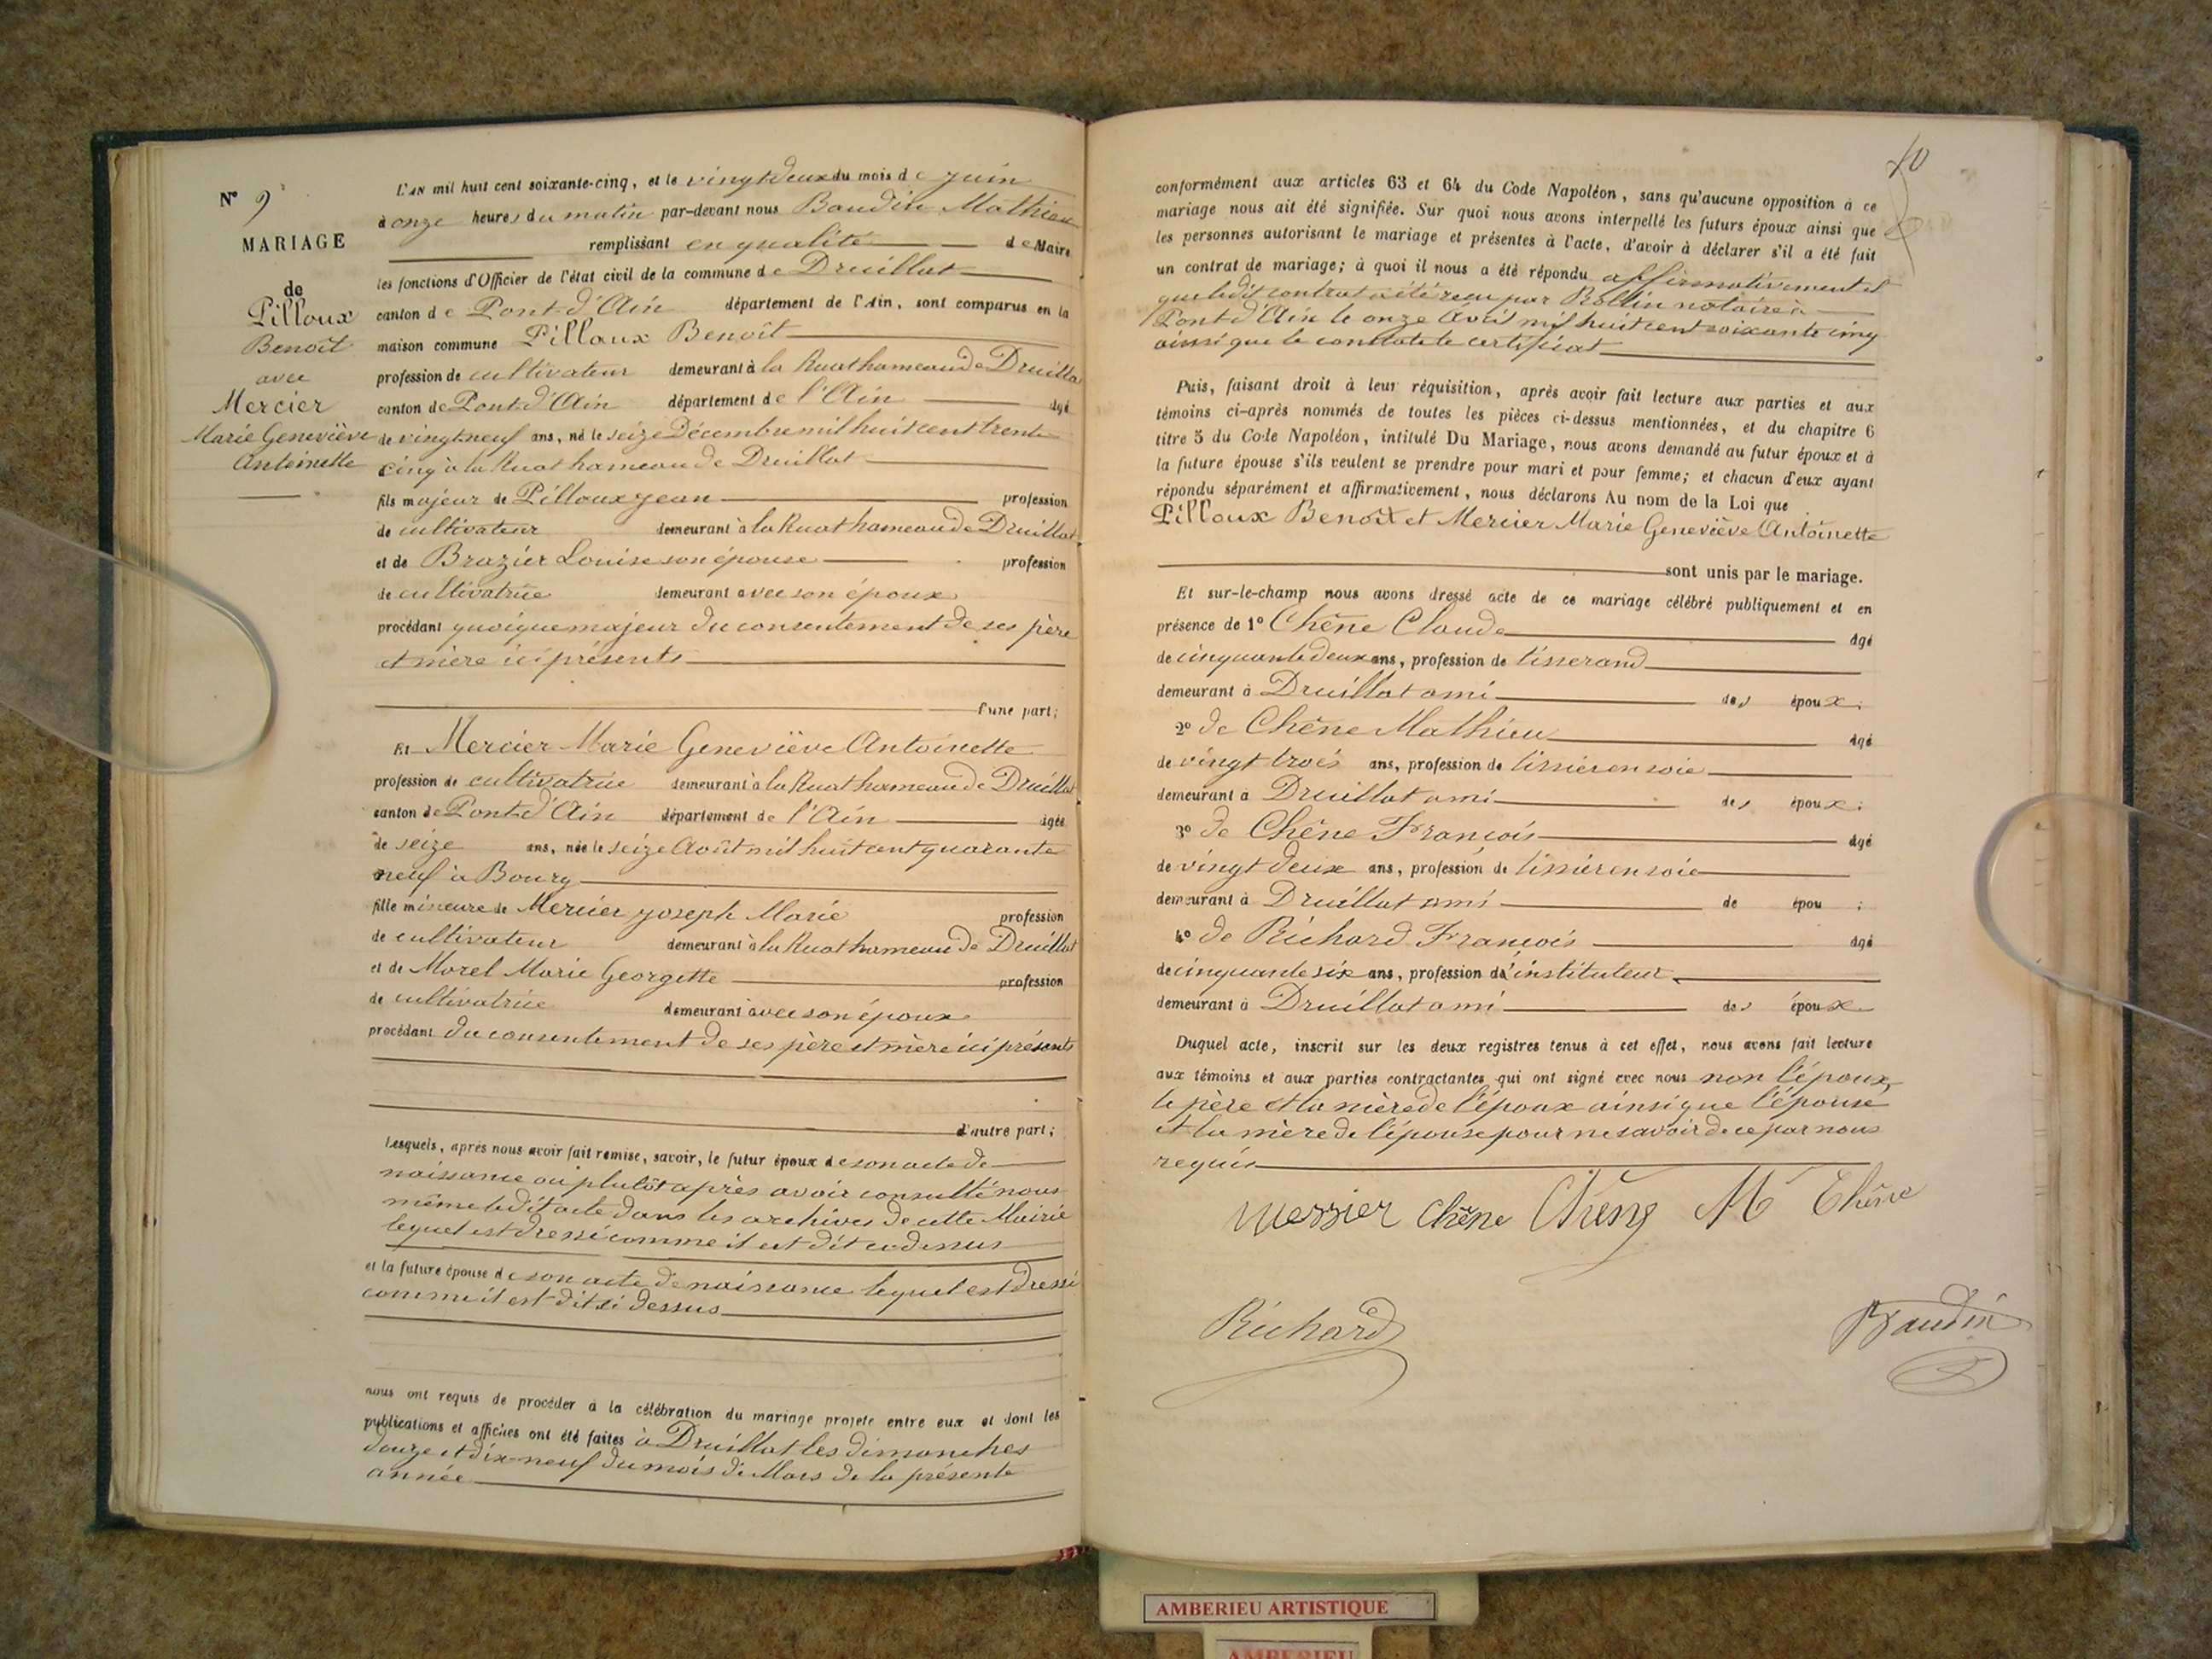 N° 9
MARIAGE
de
Pilloux
Benoît
avec
Mercier
Marie Geneviève
Antoinette
L'AN mil huit cent soixante-cinq, et le vingt deux du mois de juin
à onze heures du matin par-devant nous Baudin Mathieu
remplissant en qualité de Maire
les fonctions d'Officier de l'état civil de la commune de Druillat
canton de Pont-d'Ain département de l'Ain, sont comparus en la
maison commune Pilloux Benoît
profession de cultivateur demeurant à la Ruat hameau de Druillat
canton de Pont-d'Ain département de l'Ain âgé
de vingt neuf ans, né le seize Décembre mil huit cent trente
cinq à la Ruat hameau de Druillat
fils majeur de Pilloux Jean profession
de cultivateur demeurant à la Ruat hameau de Druillat
et de Brazier Louise son épouse profession
de cultivatrice demeurant avec son époux
procédant quoique majeur du consentement de ses père
et mère ici présents
d'une part;
Et Mercier Marie Geneviève Antoinette
profession de cultivatrice demeurant à la Ruat hameau de Druillat
canton de Pont-d'Ain département de l'Ain âgée
de seize ans, née le seize Août mil huit cent quarante
neuf à Bourg
fille mineure de Mercier Joseph Marie profession
de cultivateur demeurant à la Ruat hameau de Druillat
et de Morel Marie Georgette profession
de cultivatrice demeurant avec son époux
procédant du consentement de ses père et mère ici présents
d'autre part;
Lesquels, après nous avoir fait remise, savoir, le futur époux de son acte de
naissance ou plutôt après avoir consulté nous
même ledit acte dans les archives de cette Mairie
lequel est dressé comme il est dit ci dessus
et la future épouse de son acte de naissance lequel est dressé
comme il est dit ci dessus
nous ont requis de procéder à la célébration du mariage projeté entre eux et dont les
publications et affiches ont été faites à Druillat les dimanches
douze et dix-neuf du mois de Mars de la présente
année
10
conformément aux articles 63 et 64 du Code Napoléon, sans qu'aucune opposition à ce
mariage nous ait été signifiée. Sur quoi nous avons interpellé les futurs époux ainsi que
les personnes autorisant le mariage et présentes à l'acte, d'avoir à déclarer s'il a été fait
un contrat de mariage; à quoi il nous a été répondu affirmativement et
que ledit contrat a été reçu par Rollin notaire à
Pont-d'Ain le onze Avril mil huit cent soixante cinq
ainsi que le constate le certificat
Puis, faisant droit à leur réquisition, après avoir fait lecture aux parties et aux
témoins ci-après nommés de toutes les pièces ci-dessus mentionnées, et du chapitre 6
titre 5 du Code Napoléon, intitulé Du Mariage, nous avons demandé au futur époux et à
la future épouse s'ils veulent se prendre pour mari et pour femme; et chacun d'eux ayant
répondu séparément et affirmativement, nous déclarons Au nom de la Loi que
Pilloux Benoît et Mercier Marie Geneviève Antoinette
sont unis par le mariage.
Et sur-le-champ nous avons dressé acte de ce mariage célébré publiquement et en
présence de 1° Chêne Claude âgé
de cinquante deux ans, profession de tisserand
demeurant à Druillat ami des époux;
2° de Chêne Mathieu âgé
de vingt trois ans, profession de tissier en soie
demeurant à Druillat ami des époux;
3° de Chêne François âgé
de vingt deux ans, profession de tissier en soie
demeurant à Druillat ami de épou ;
4° de Richard François âgé
de cinquante six ans, profession d'instituteur
demeurant à Druillat ami des époux
Duquel acte, inscrit sur les deux registres tenus à cet effet, nous avons fait lecture
aux témoins et aux parties contractantes qui ont signé avec nous non l'époux,
le père et la mère de l'époux ainsi que l'épouse
et la mère de l'épouse pour ne savoir de ce par nous
requis
Mersier Chêne Chêne M Chêne
Richard Baudin
AMBERIEU ARTISTIQUE
AMBERIEU